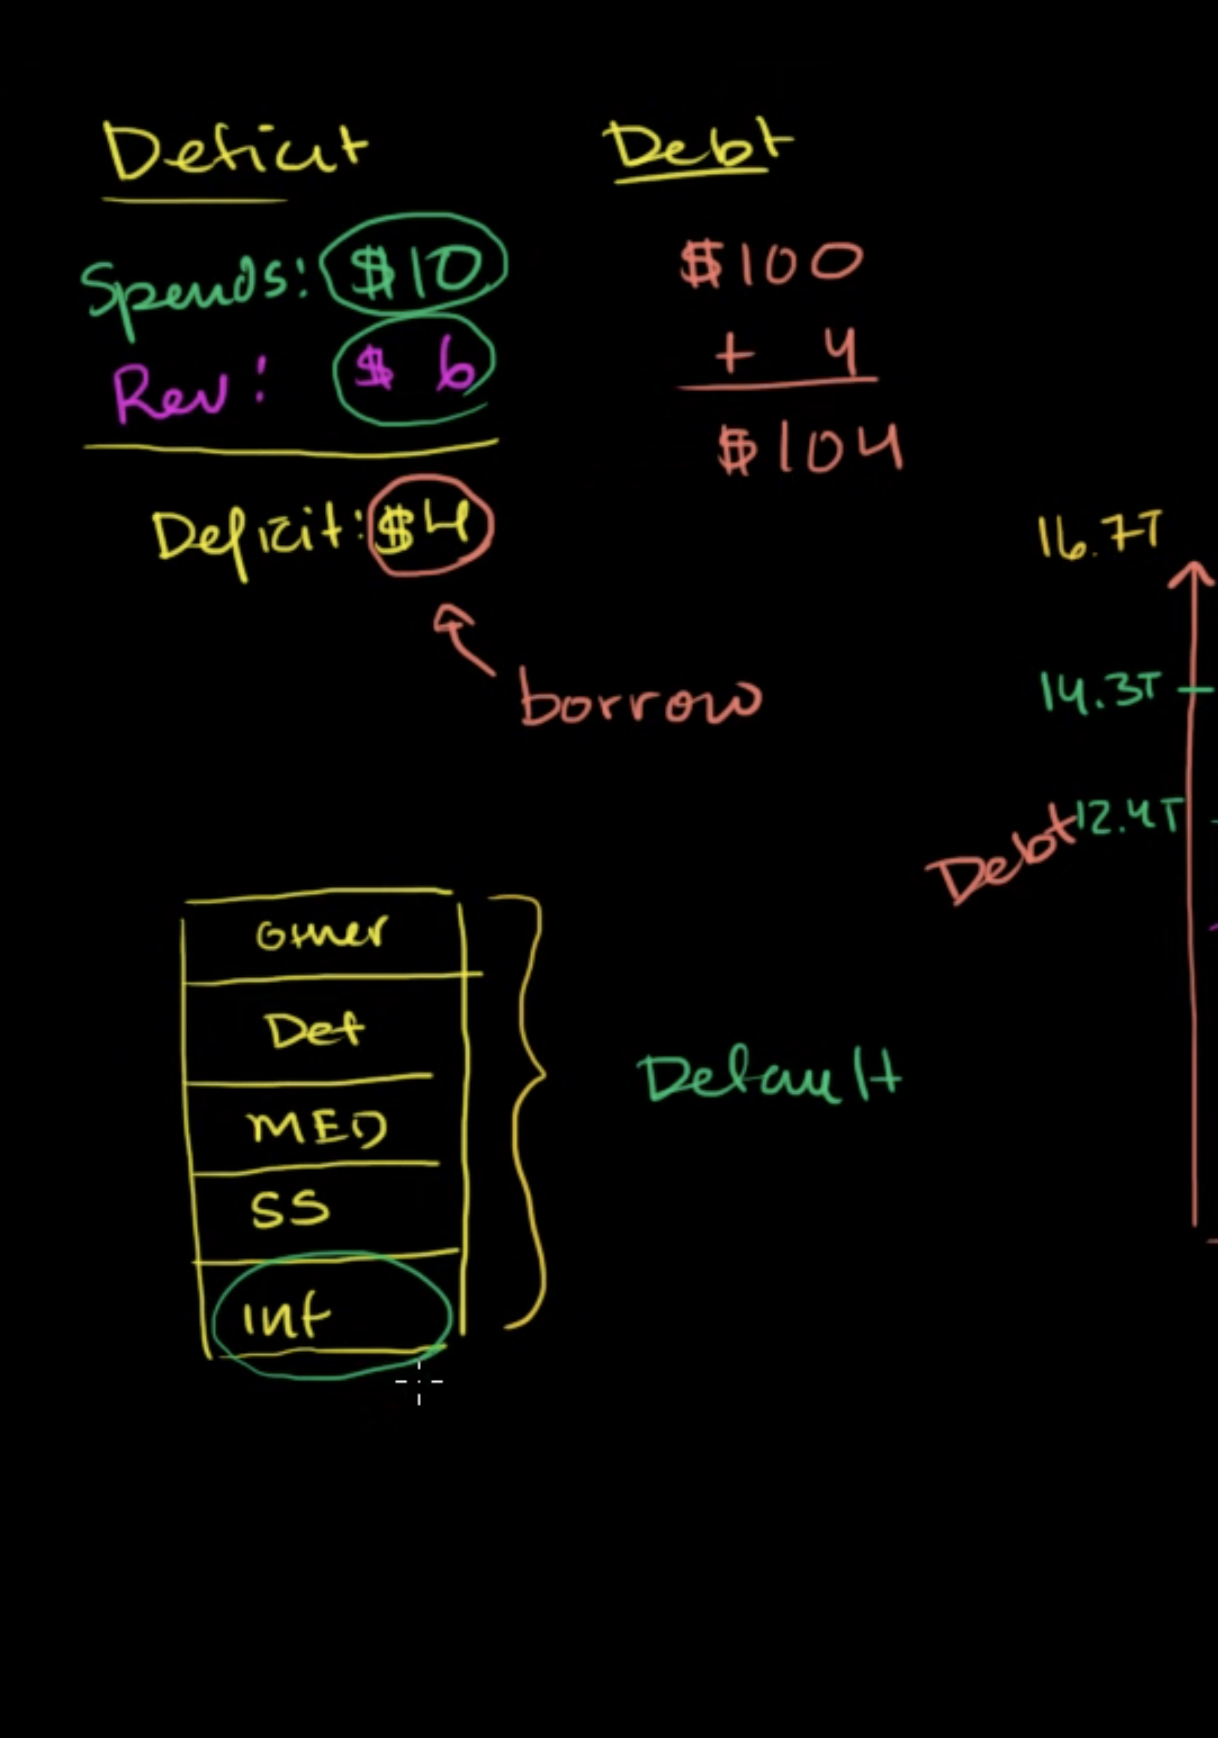 Deficit
Spends: $10
Rev: $ 6
Deficit: $4
borrow
Debt
$100
+ 4
$104
16.7T
14.3T
12.4T
Debt
Other
Def
MED
SS
Int
Default